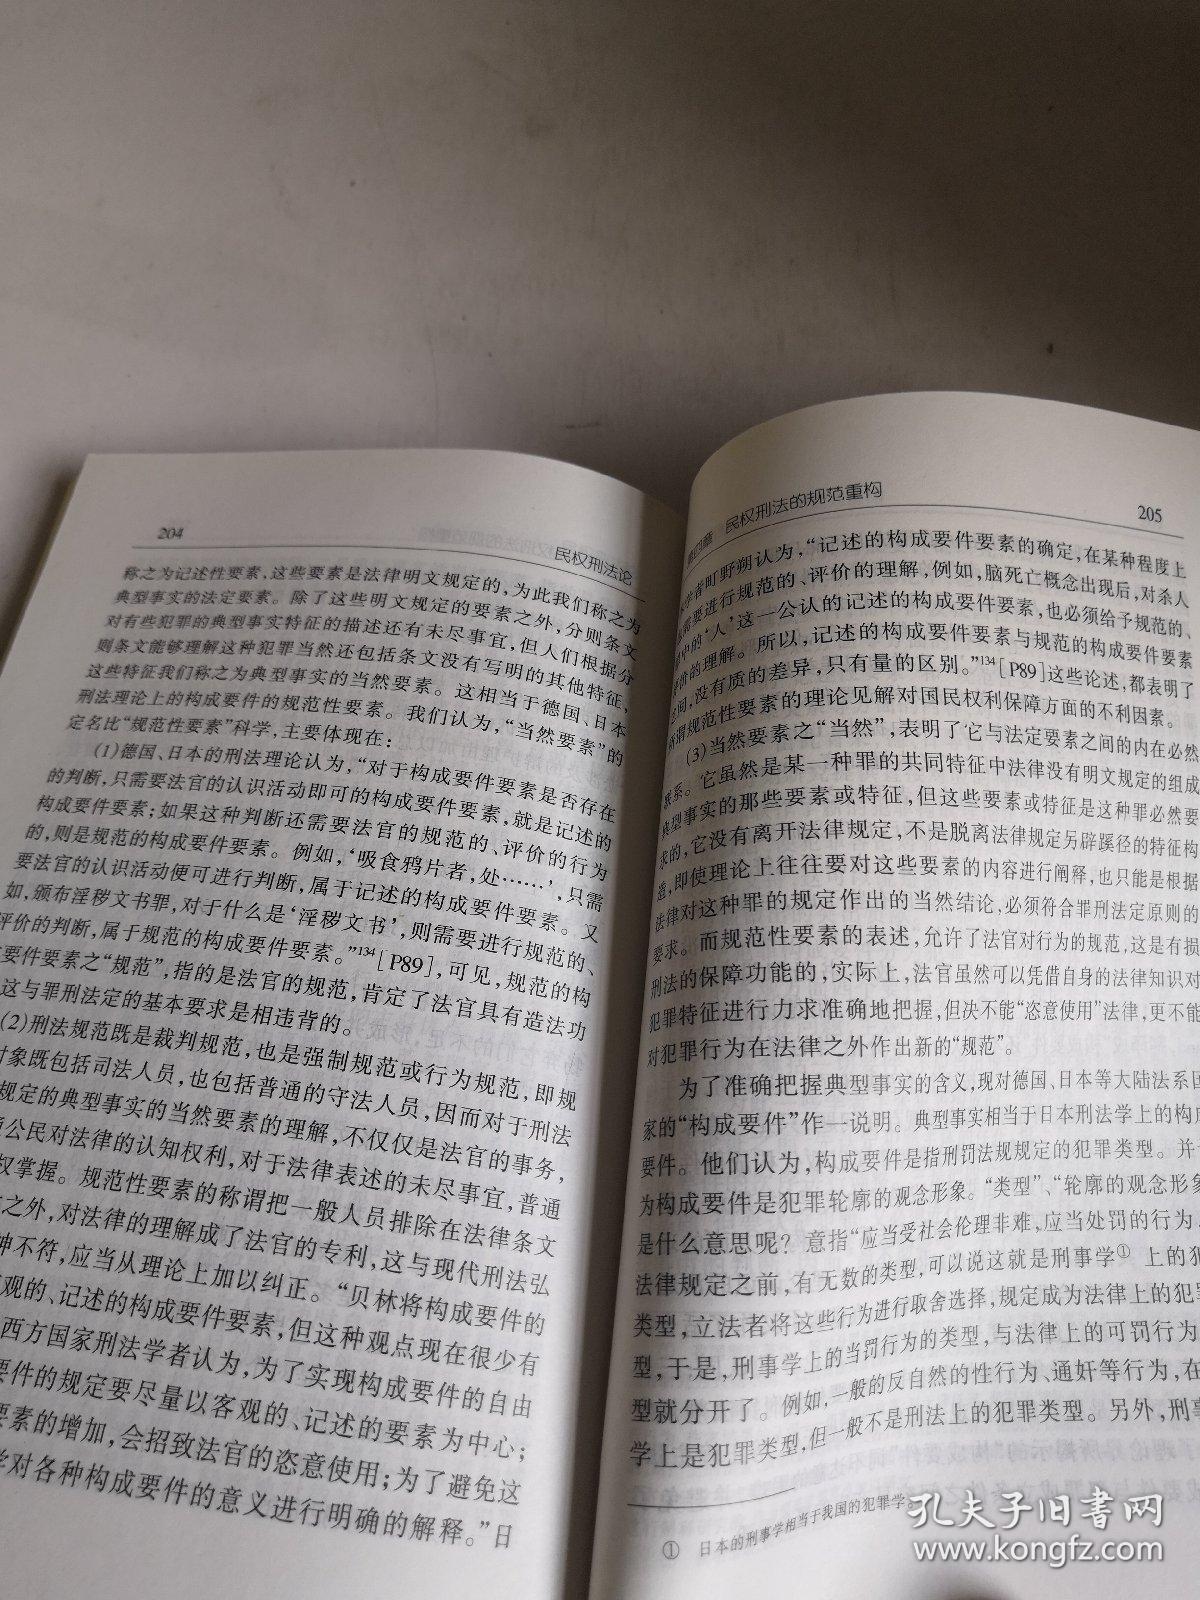 204
民权刑法论
称之为记述性要素,这些要素是法律明文规定的,为此我们称之为
典型事实的法定要素。除了这些明文规定的要素之外,分则条文
对有些犯罪的典型事实特征的描述还有未尽事宜,但人们根据分
则条文能够理解这种犯罪当然还包括条文没有写明的其他特征,
这些特征我们称之为典型事实的当然要素。这相当于德国、日本
刑法理论上的构成要件的规范性要素。我们认为,“当然要素”的
定名比“规范性要素”科学,主要体现在:
(1)德国、日本的刑法理论认为,“对于构成要件要素是否存在
的判断,只需要法官的认识活动即可的构成要件要素,就是记述的
构成要件要素;如果这种判断还需要法官的规范的、评价的行为
的,则是规范的构成要件要素。例如,‘吸食鸦片者,处……’,只需
要法官的认识活动便可进行判断,属于记述的构成要件要素。又
如,颁布淫秽文书罪,对于什么是‘淫秽文书’,则需要进行规范的、
评价的判断,属于规范的构成要件要素。”134[P89],可见,规范的构
要件要素之“规范”,指的是法官的规范,肯定了法官具有造法功
这与罪刑法定的基本要求是相违背的。
(2)刑法规范既是裁判规范,也是强制规范或行为规范,即规
对象既包括司法人员,也包括普通的守法人员,因而对于刑法
规定的典型事实的当然要素的理解,不仅仅是法官的事务,
公民对法律的认知权利,对于法律表述的未尽事宜,普通
权掌握。规范性要素的称谓把一般人员排除在法律条文
之外,对法律的理解成了法官的专利,这与现代刑法弘
神不符,应当从理论上加以纠正。“贝林将构成要件的
观的、记述的构成要件要素,但这种观点现在很少有
西方国家刑法学者认为,为了实现构成要件的自由
要件的规定要尽量以客观的、记述的要素为中心;
要素的增加,会招致法官的恣意使用;为了避免这
学对各种构成要件的意义进行明确的解释。”日
第四章 民权刑法的规范重构
205
本学者町野朔认为,“记述的构成要件要素的确定,在某种程度上
也需要进行规范的、评价的理解,例如,脑死亡概念出现后,对杀人
罪中的‘人’这一公认的记述的构成要件要素,也必须给予规范的、
评价的理解。所以,记述的构成要件要素与规范的构成要件要素
之间,没有质的差异,只有量的区别。”134[P89]这些论述,都表明了
所谓规范性要素的理论见解对国民权利保障方面的不利因素。
(3)当然要素之“当然”,表明了它与法定要素之间的内在必然
联系。它虽然是某一种罪的共同特征中法律没有明文规定的组成
典型事实的那些要素或特征,但这些要素或特征是这种罪必然要
求的,它没有离开法律规定,不是脱离法律规定另辟蹊径的特征构
造,即使理论上往往要对这些要素的内容进行阐释,也只能是根据
法律对这种罪的规定作出的当然结论,必须符合罪刑法定原则的
要求。而规范性要素的表述,允许了法官对行为的规范,这是有损
刑法的保障功能的,实际上,法官虽然可以凭借自身的法律知识对
犯罪特征进行力求准确地把握,但决不能“恣意使用”法律,更不能
对犯罪行为在法律之外作出新的“规范”。
为了准确把握典型事实的含义,现对德国、日本等大陆法系国
家的“构成要件”作一说明。典型事实相当于日本刑法学上的构成
要件。他们认为,构成要件是指刑罚法规规定的犯罪类型。并认
为构成要件是犯罪轮廓的观念形象。“类型”、“轮廓的观念形象”
是什么意思呢?意指“应当受社会伦理非难,应当处罚的行为,
法律规定之前,有无数的类型,可以说这就是刑事学① 上的犯
类型,立法者将这些行为进行取舍选择,规定成为法律上的犯罪
型,于是,刑事学上的当罚行为的类型,与法律上的可罚行为
型就分开了。例如,一般的反自然的性行为、通奸等行为,在
学上是犯罪类型,但一般不是刑法上的犯罪类型。另外,刑事
① 日本的刑事学相当于我国的犯罪学。
孔夫子旧书网
www.kongfz.com